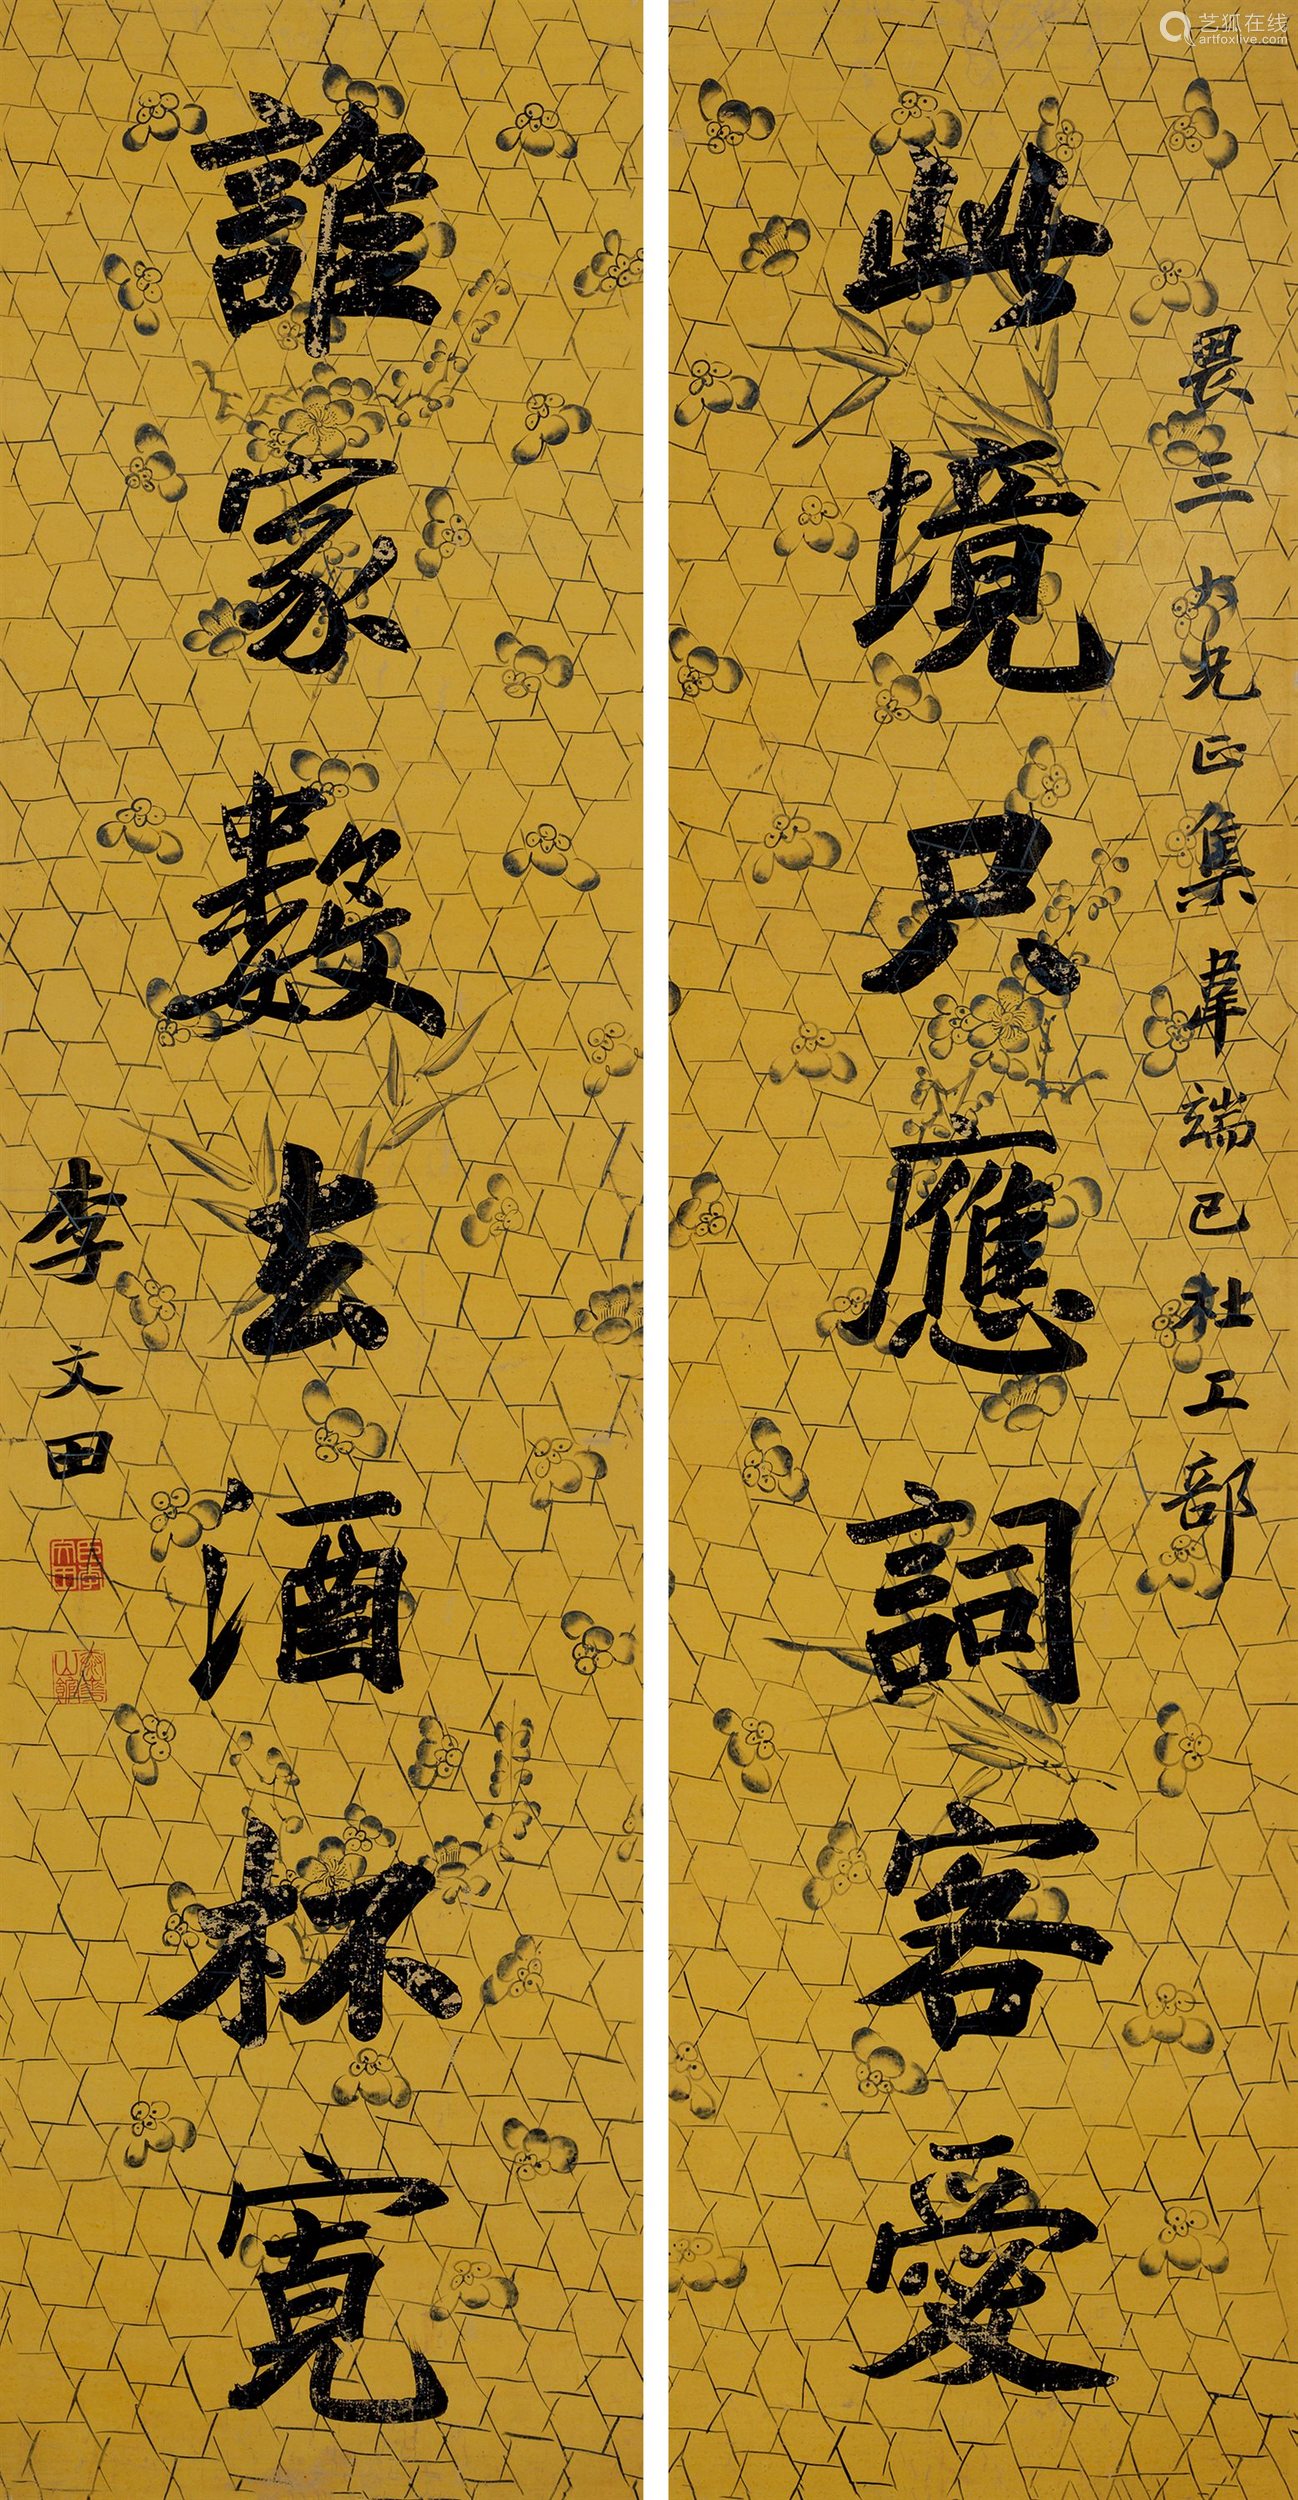 此境只應詞客愛
畏三大兄正集韋端己杜工部
誰家數去酒杯寬
李文田
臣李文田
泰華山館
艺狐在线
artfoxlive.com